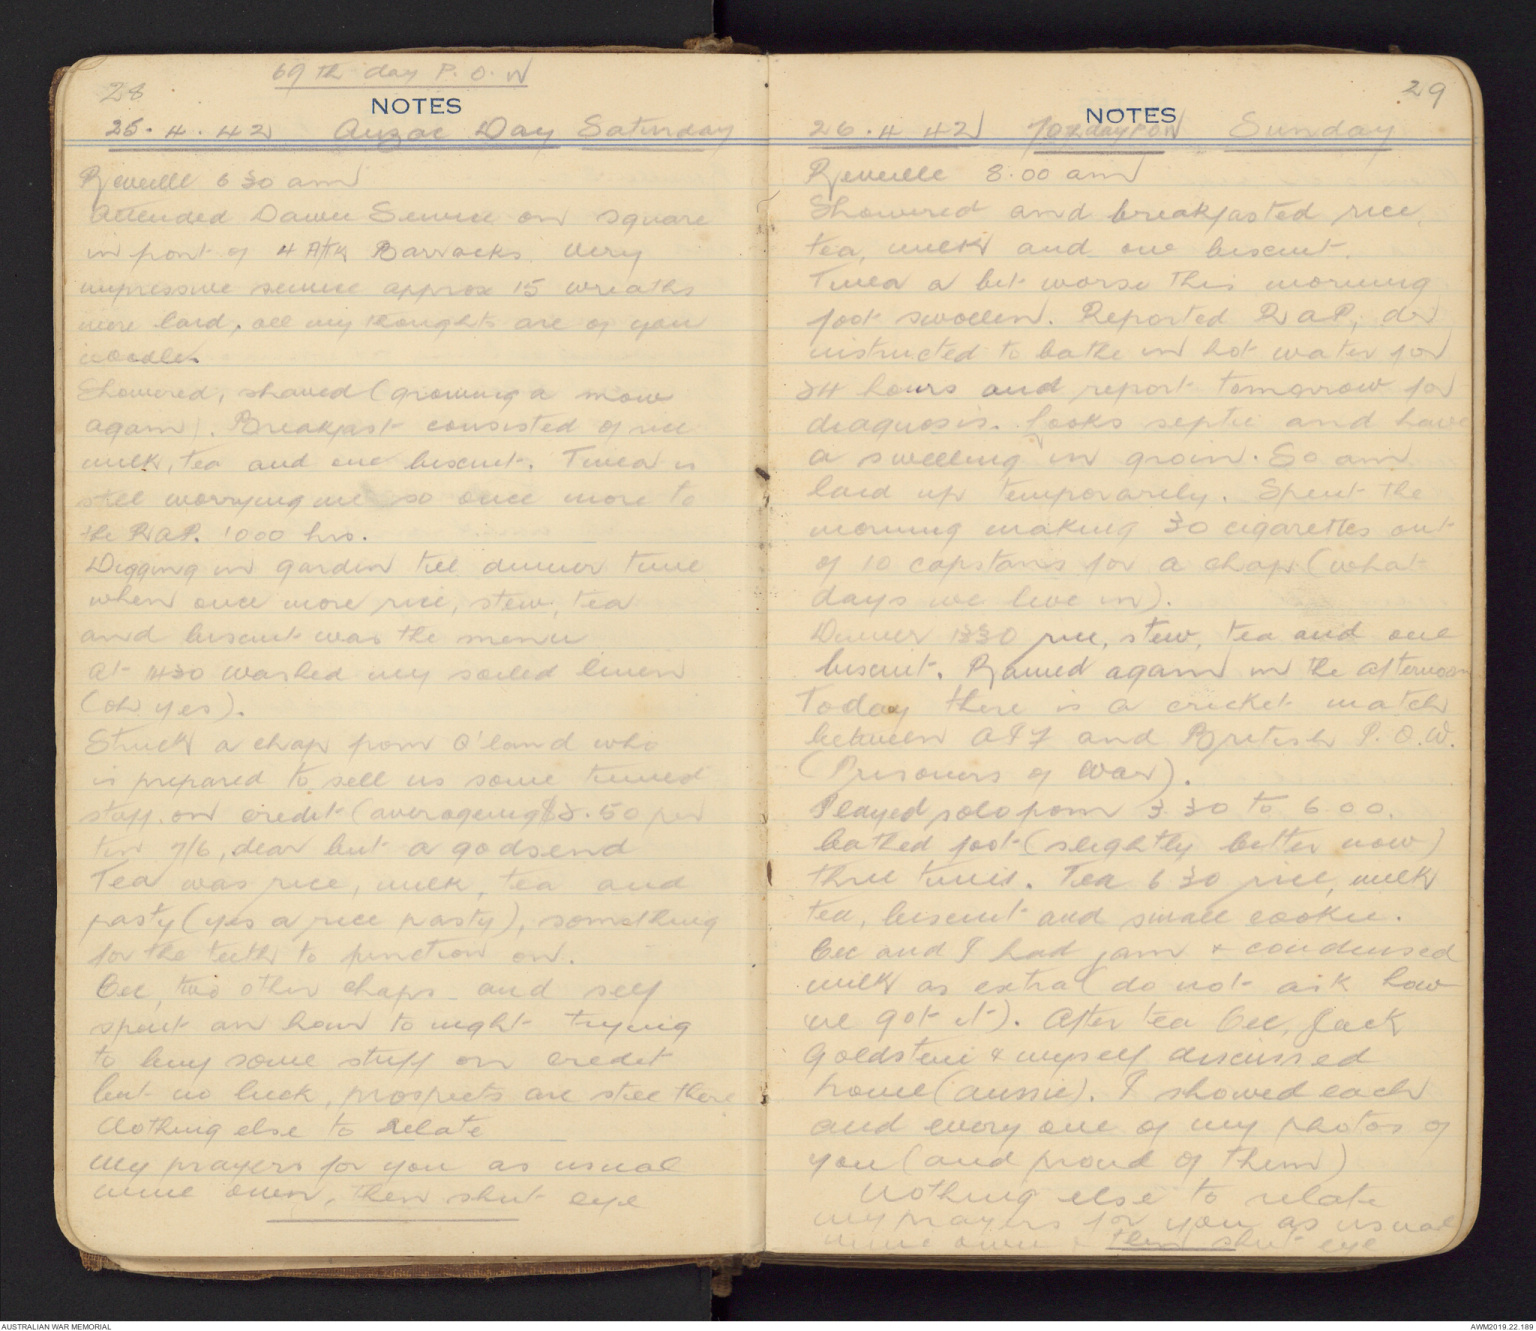 28
69th day P.O.W
NOTES
25.4.42 Anzac Day Saturday
Reveille 6 30 am
Attended Dawn Service on square
in front of 4 A/Tk Barracks. Very
impressive service approx 15 wreaths
were laid, all my thoughts are of you
Showered, shaved (growing a mow
again). Breakfast consisted of rice
milk, tea and one biscuit. Tinea is
still worrying me so once more to
the RAP. 1000 hrs.
Digging in garden till dinner time
when once more rice, stew, tea
and biscuit was the menu
At 1430 washed my soiled linen
(oh yes).
Struck a chap from Q'land who
is prepared to sell us some tinned
stuff on credit (averageing $3.50 per
tin 7/6, dear but a godsend
Tea was rice, milk, tea and
pasty (yes a rice pasty), something
for the teeth to function on.
Cec, two other chaps and self
spent an hour to night trying
to buy some stuff on credit
but no luck, prospects are still there
Nothing else to relate
My prayers for you as usual
mine own, then shut eye
29
NOTES
26.4.42 70th day P.O.W Sunday
Reveille 8.00 am
Showered and breakfasted rice,
tea, milk and one biscuit.
Tinea a bit worse this morning
foot swollen. Reported RAP, dr
instructed to bathe in hot water for
24 hours and report tomorrow for
diagnosis. Looks septic and have
a swelling in groin. So am
laid up temporarely. Spent the
morning making 30 cigarettes out
of 10 capstans for a chap (what
days we live in).
Dinner 1330 rice, stew, tea and one
biscuit. Rained again in the afternoon
Today there is a cricket match
between AIF and British P.O.W.
(Prisoners of War).
Played solo from 3 30 to 6 00.
bathed foot (slightly better now)
three times. Tea 6 30 rice, milk
tea, biscuit and small cookie.
Cec and I had jam & condensed
milk as extra (do not ask how
we got it). After tea Cec, Jack
Goldstein & myself discussed
home (aussie). I showed each
and every one of my photos of
you (and proud of them)
Nothing else to relate
my prayers for you as usual
mine own then shut eye
AUSTRALIAN WAR MEMORIAL
AWM2019.22.189